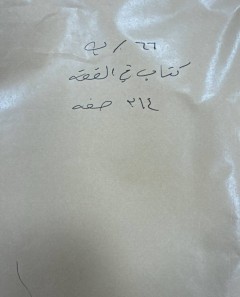 ٦٦ / ب
كتاب في الفقه
٣١٤ صفه